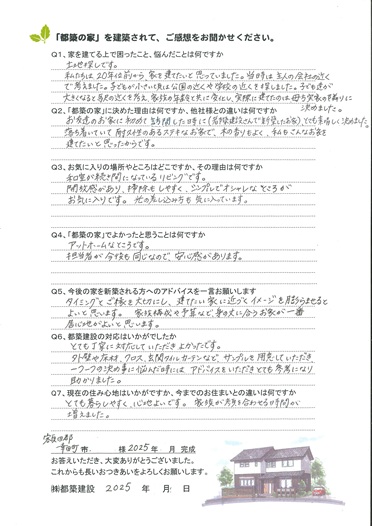 「都築の家」を建築されて、ご感想をお聞かせください。
Q1、家を建てる上で困ったこと、悩んだことは何ですか
土地探しです。
私たちは20年位前から、家を建てたいと思っていました。当時は主人の会社の近く
で考えました。子どもが小さい頃は公園の近くや学校の近くを探しました。子ども達が
大きくなると駅の近くを考え、家族の年齢と共に変化し、実際に建てたのは母の実家の隣りに
決めました。
Q2、「都築の家」に決めた理由は何ですか、他社様との違いは何ですか
お友達のお家に初めて訪問した時に
とても素晴しく決めました。
落ち着いていて耐久性のあるステキなお家で、木の香りもよく、私もこんなお家を
建てたいと思ったからです。
Q3、お気に入りの場所やところはどこですか、その理由は何ですか
和室が続き間になっているリビングです。
開放感があり、掃除もしやすく、シンプルでオシャレなところが
お気に入りです。光の差し込み方も気に入っています。
Q4、「都築の家」でよかったと思うことは何ですか
アットホームなところです。
担当者が今後も同じなので、安心感があります。
Q5、今後の家を新築される方へのアドバイスを一言お願いします
タイミングとご縁を大切にし、建てたい家に近づくイメージを膨らませると
よいと思います。家族構成や予算など、身の丈に合うお家が一番
居心地がよいと思います。
Q6、都築建設の対応はいかがでしたか
とても丁寧に対応していただきよかったです。
外壁や床材、クロス、玄関タイル、カーテンなど、サンプルを用意していただき
一つ一つの決め事に悩んだ時には、アドバイスもいただきとても参考になり
助かりました。
Q7、現在の住み心地はいかがですか、今までのお住まいとの違いは何ですか
とても暮らしやすく、心地よいです。家族が顔を合わせる時間が
増えました。
額田郡
幸田町 市 様 2025年 月 完成
お答えいただき、大変ありがとうございました。
これからも長いおつきあいをよろしくお願いします。
㈱都築建設 2025 年 月 日